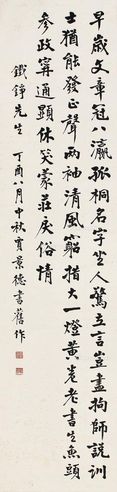 早歲文章冠八瀛孤桐名字坐人驚立言豈盡拘師說訓
士猶能發正聲兩袖清風窮措大一燈黃卷老書生魚頭
參政寗通顯休笑蒙莊戾俗情
鐵錚先生 丁酉八月中秋賈景德書舊作